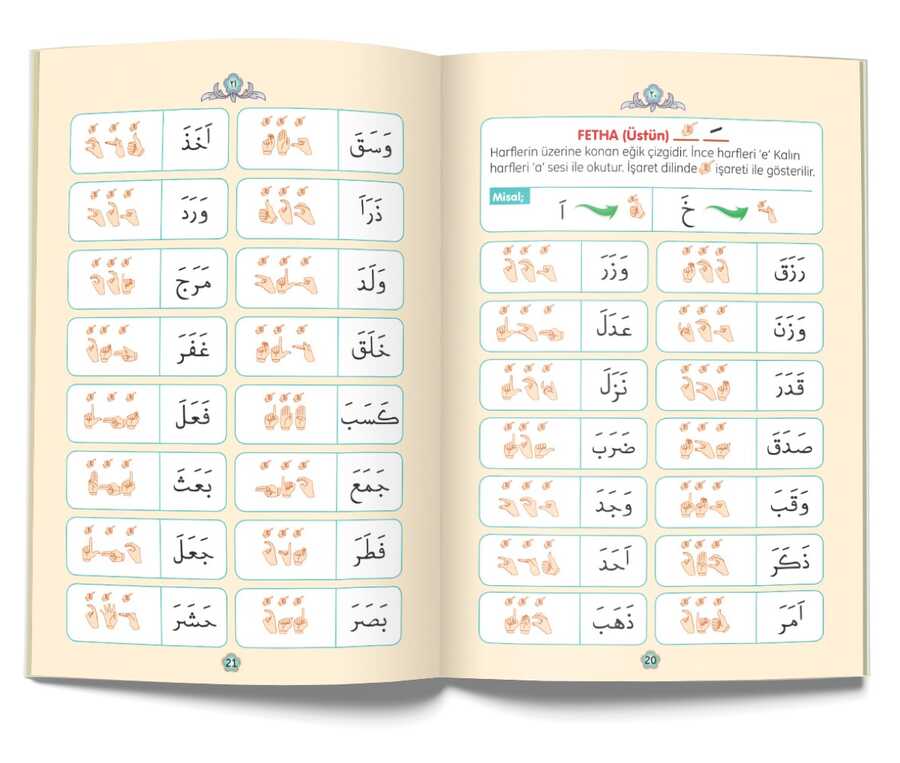 ٢٠
FETHA (Üstün) ـَ
Harflerin üzerine konan eğik çizgidir. İnce harfleri 'e' Kalın
harfleri 'a' sesi ile okutur. İşaret dilinde işareti ile gösterilir.
Misal;
خَ اَ
رَزَقَ وَزَرَ
وَزَنَ عَدَلَ
قَدَرَ نَزَلَ
صَدَقَ ضَرَبَ
وَقَبَ وَجَدَ
ذَكَرَ اَحَدَ
اَمَرَ ذَهَبَ
20
٢١
وَسَقَ اَخَذَ
ذَرَاَ وَرَدَ
وَلَدَ مَرَجَ
خَلَقَ غَفَرَ
كَسَبَ فَعَلَ
جَمَعَ بَعَثَ
فَطَرَ جَعَلَ
بَصَرَ حَشَرَ
21